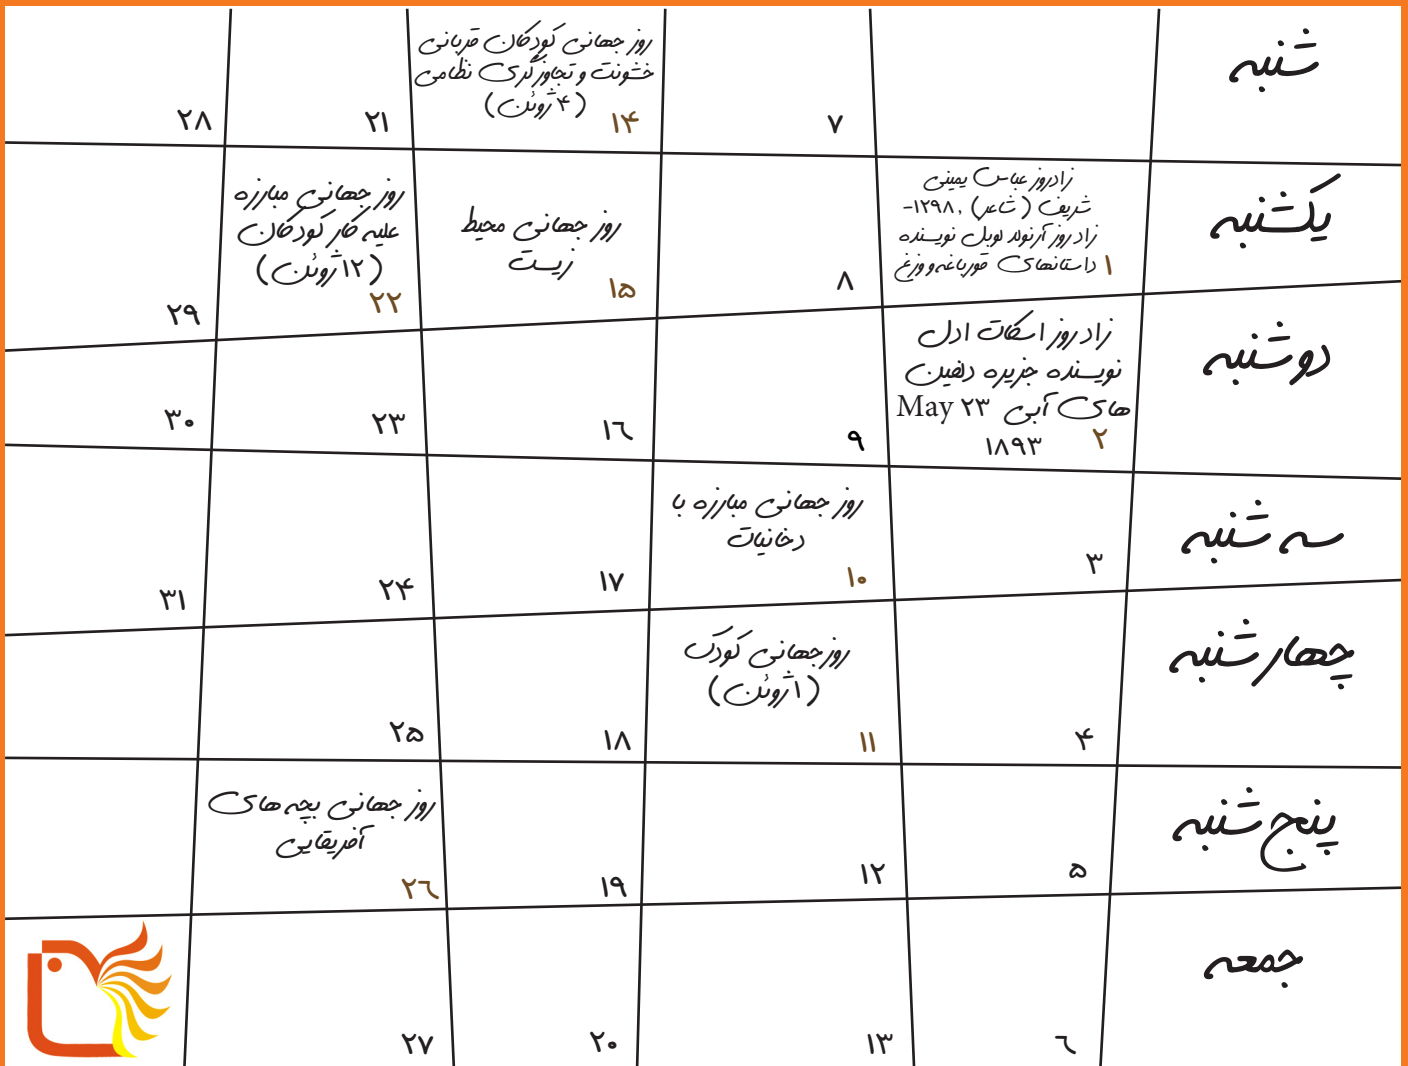 شنبه
۷
روز جهانی کودکان قربانی
خشونت و تجاوزگری نظامی
(۴ ژوئن)
۱۴
۲۱
۲۸
یکشنبه
زادروز عباس یمینی
شریف (شاعر) ,۱۲۹۸-
زادروز آرنولد لوبل نویسنده
داستانهای قورباغه و وزغ
۱
۸
روز جهانی محیط
زیست
۱۵
روز جهانی مبارزه
علیه کار کودکان
(۱۲ ژوئن)
۲۲
۲۹
دوشنبه
زادروز اسکات ادل
نویسنده جزیره دلفین
های آبی ۲۳ May
۱۸۹۳
۲
۹
۱۶
۲۳
۳۰
سه شنبه
۳
روز جهانی مبارزه با
دخانیات
۱۰
۱۷
۲۴
۳۱
چهارشنبه
۴
روز جهانی کودک
(۱ ژوئن)
۱۱
۱۸
۲۵
پنج شنبه
۵
۱۲
۱۹
روز جهانی بچه های
آفریقایی
۲۶
جمعه
۶
۱۳
۲۰
۲۷